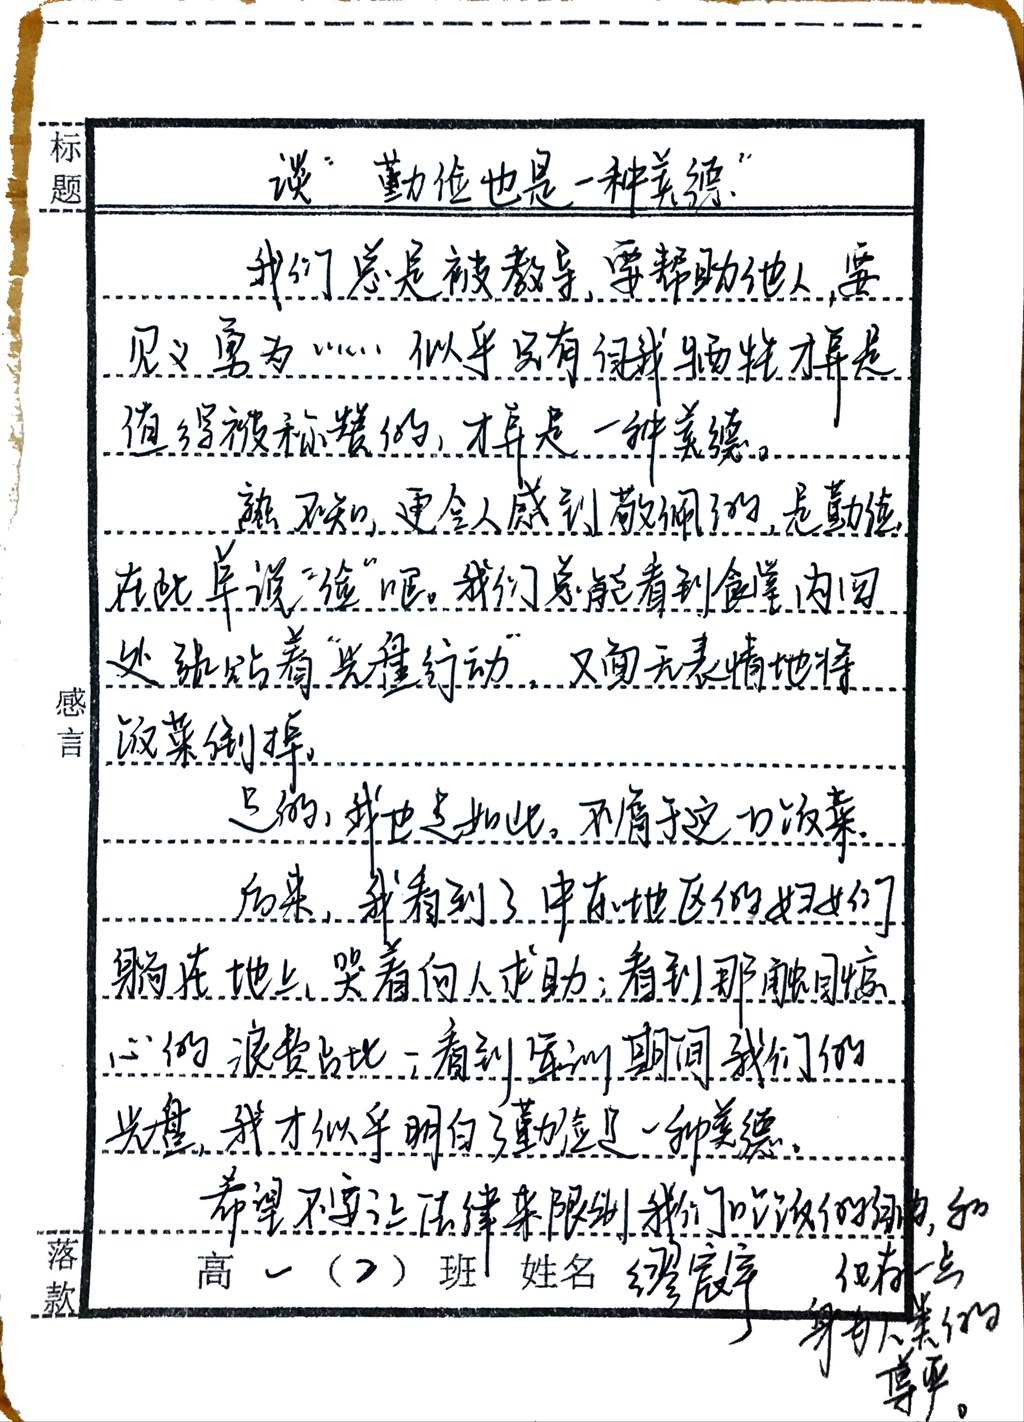 标题
谈"勤俭也是一种美德"
我们总是被教导,要帮助他人,要
见义勇为……似乎只有自我牺牲才算是
值得被称赞的,才算是一种美德。
孰不知,更令人感到敬佩的,是勤俭.
在此单说"俭"吧。我们总能看到食堂内四
处张贴着"光盘行动",又面无表情地将
饭菜倒掉。
是的,我也是如此。不屑于这口饭菜.
后来,我看到了中东地区的妇女们
躺在地上,哭着向人求助;看到那触目惊
心的浪费占比;看到军训期间我们的
光盘,我才似乎明白了勤俭是一种美德。
希望不要让法律来限制我们吃饭的自由,和
感言
落款
高一(2)班 姓名 缪宸宇
但存一点
身为人类的
尊严。